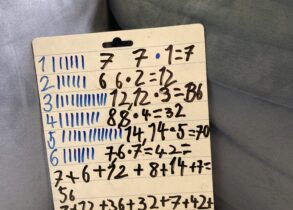 1 |||||| 7 7 · 1 = 7
2 |||||| 6 6 · 2 = 12
3 |||||||||||| 12, 12 · 3 = 36
4 |||||||| 8 8 · 4 = 32
5 |||||||||||||| 14, 14 · 5 = 70
6 |||||| 7 6 · 7 = 42 =
7 + 6 + 12 + 8 + 14 + 7 =
56
7 + 12 + 36 + 32 + 7 + 42 +